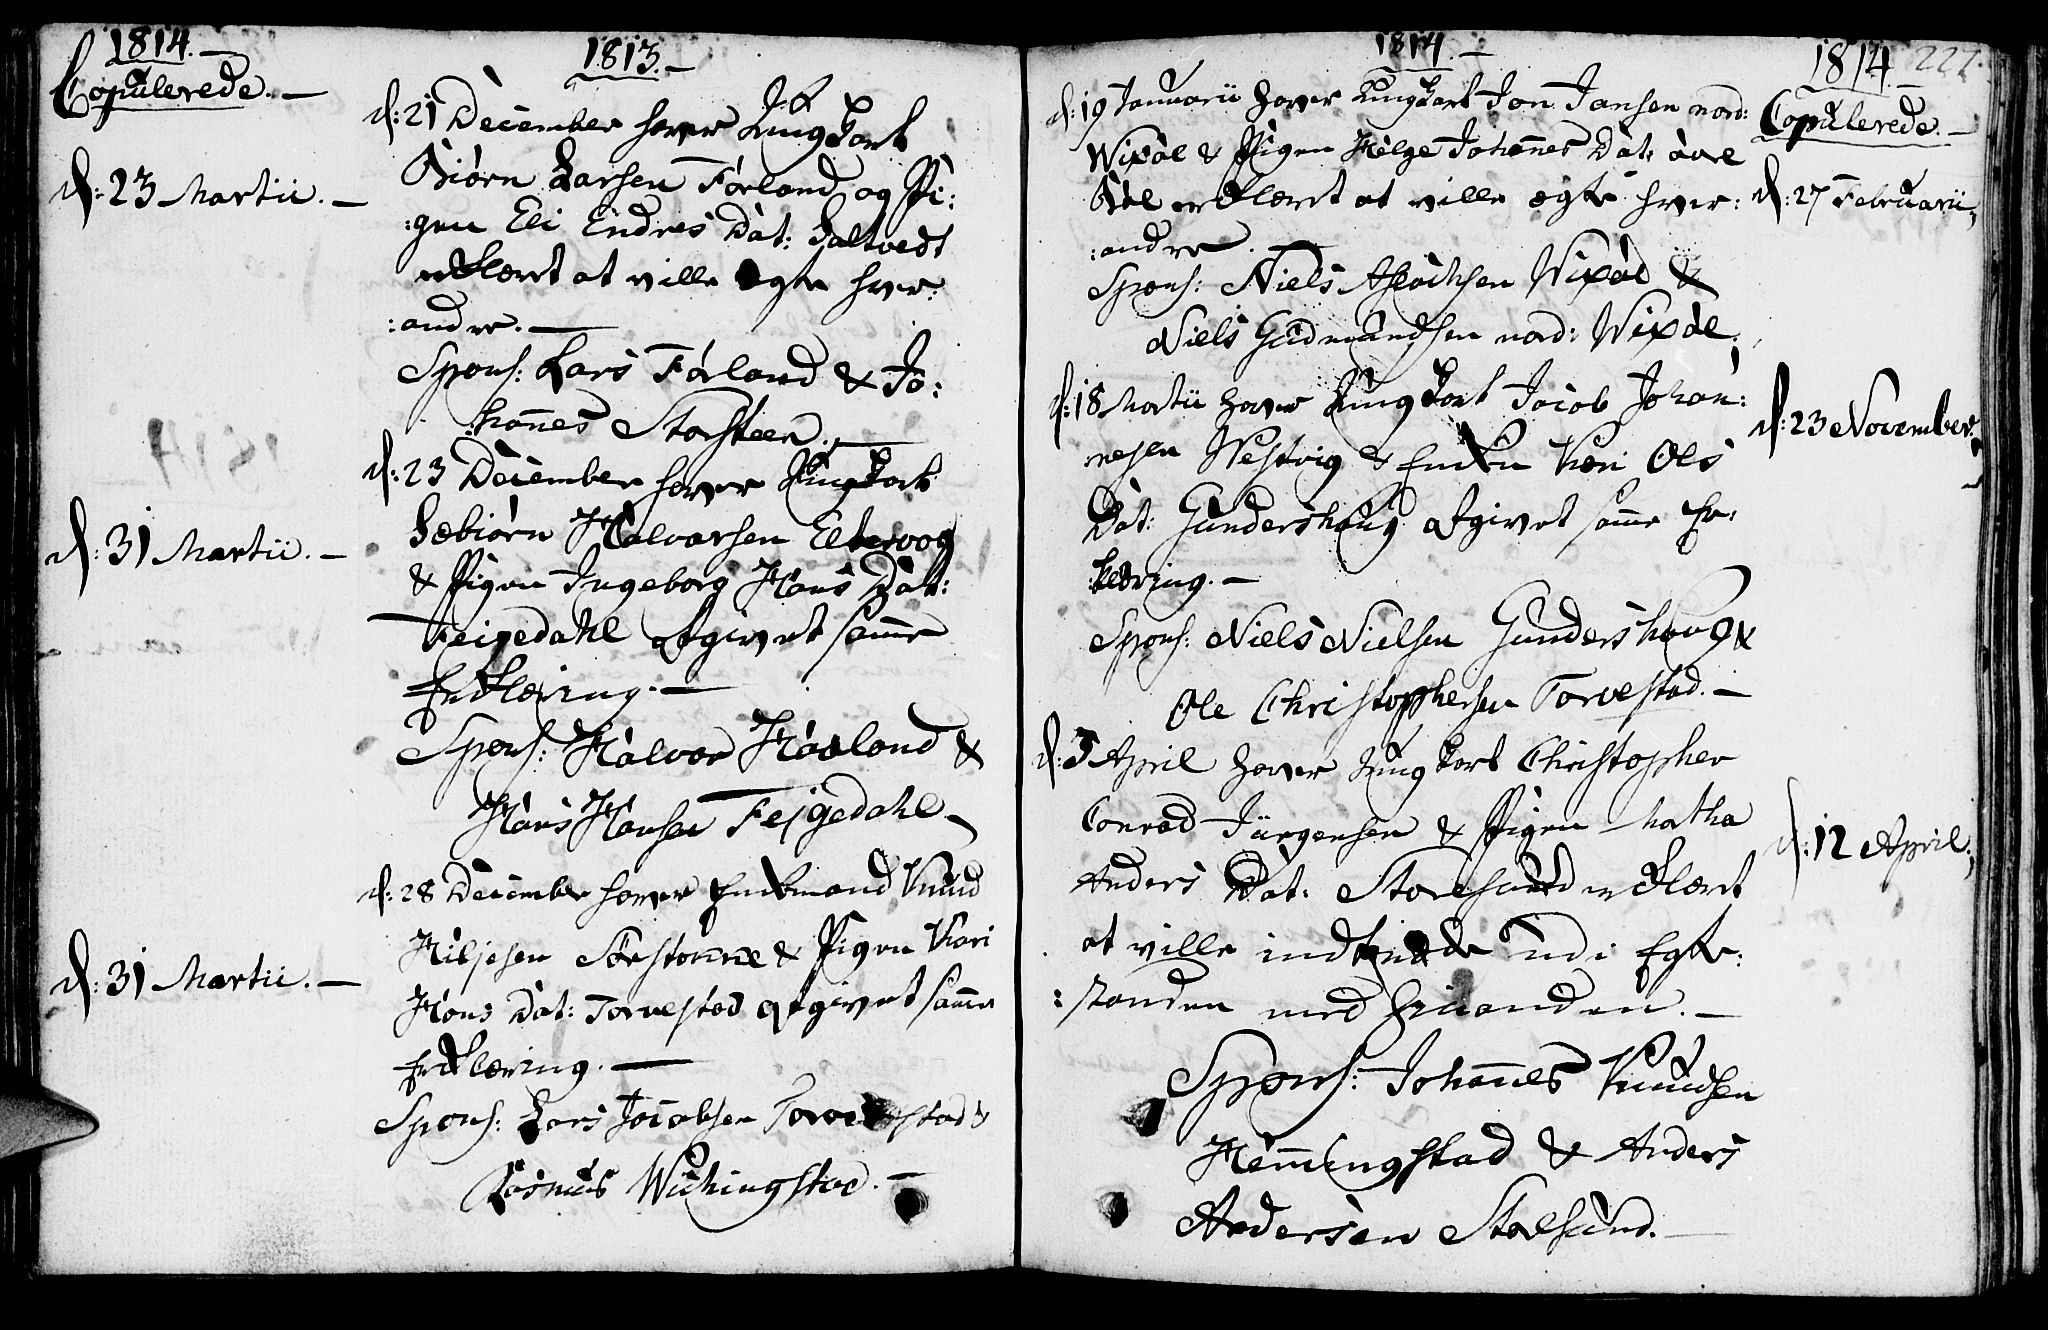 1814.
Copulerede.
d: 23 Martii.
d: 31 Martii.
d: 31 Martii.
1813.
d: 21 December haver Ungkarl
Biörn Larsen Förland og Pi:
:gen Eli Endres Dat: Saltvedt
erklæret at ville egte hver:
:andre.
Spons: Lars Förland & Jo:
:hañes Storsteen.
d: 23 December haver Ungkarl
Sebiörn Halvarsen Eltervog
& Pigen Ingeborg Hans Dat:
Feigedahl afgivet sam̄e
Erklæring.
Spons: Halvor Haaland &
Hans Hansen Fejgedahl
d: 28 December haver Enkemand Knud
Kiljesen Sörstonne & Pigen Kari
Hans Dat: Torvestad afgivet sam̄e
Erklæring.
Spons: Lars Jacobsen Torvestad &
Rasmus Wichingstad.
1814.
d: 19 Januarii haver Ungkarl Jon Jansen nord:
Wixöl & Pigen Helge Johañes Dat: övre
Böl erklæret at ville egte hver:
:andre.
Spons: Niels Aslachsen Wixöl &
Niels Gudmundsen nord: Wixöl.
d: 18 Martii haver Ungkarl Jacob Johan:
nesen Westvig & Enken Kari Ols
Dat: Gundershaug afgivet sam̄e Er:
:klæring.
Spons: Niels Nielsen Gundershoug &
Ole Christophersen Torvestad.
d: 3 April haver Ungkarl Christopher
Conrad Jürgensen & Pigen Martha
Anders Dat: Storesund erklæret
at ville indtræde udi Egte:
:standen med hinanden.
Spons: Johañes Knudsen
Hem̄ingstad & Anders
Andersen Storesund.
1814
227.
Copulerede.
d: 27 Februarii
d: 23 November.
d: 12 April.